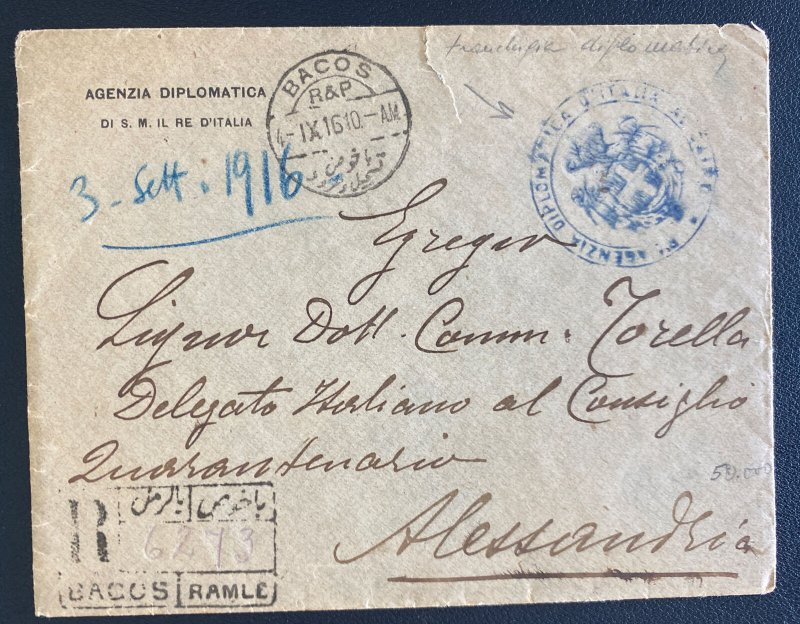 diplomatica
AGENZIA DIPLOMATICA
DI S. M. IL RE D'ITALIA
BACOS
R&P
4-IX 16 10.-AM
باخوس
R. AGENZIA DIPLOMATICA D'ITALIA
3 - Sett. 1916
Egregio
Signor Dott. Comm. Torella
Delegato Italiano al Consiglio
Quarantenario
50.000
Alessandria
بالرمل باخوس
R 6273
BACOS RAMLE